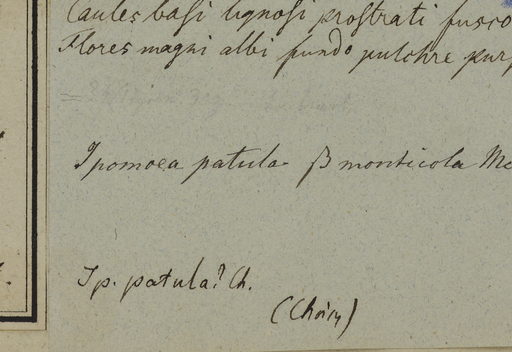 Caules basi lignosi prostrati fusco
Flores magni albi fundo pulchre pur
Ipomoea patula β monticola Me
Ip. patula? Ch.
(Choisy)